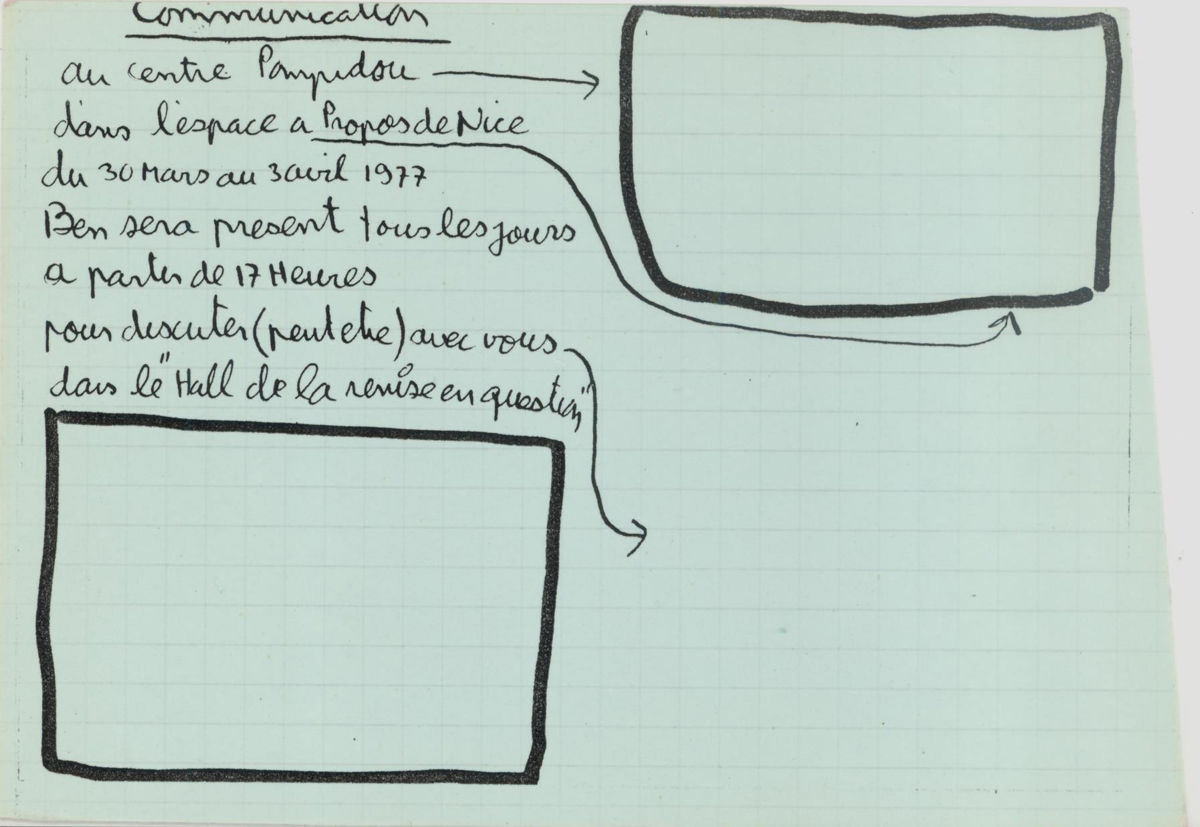 Communication
au centre Pompidou
dans l'espace a Propos de Nice
du 30 Mars au 3 avril 1977
Ben sera present tous les jours
a partir de 17 Heures
pour discuter (peut etre) avec vous
dans le "Hall de la remise en question"